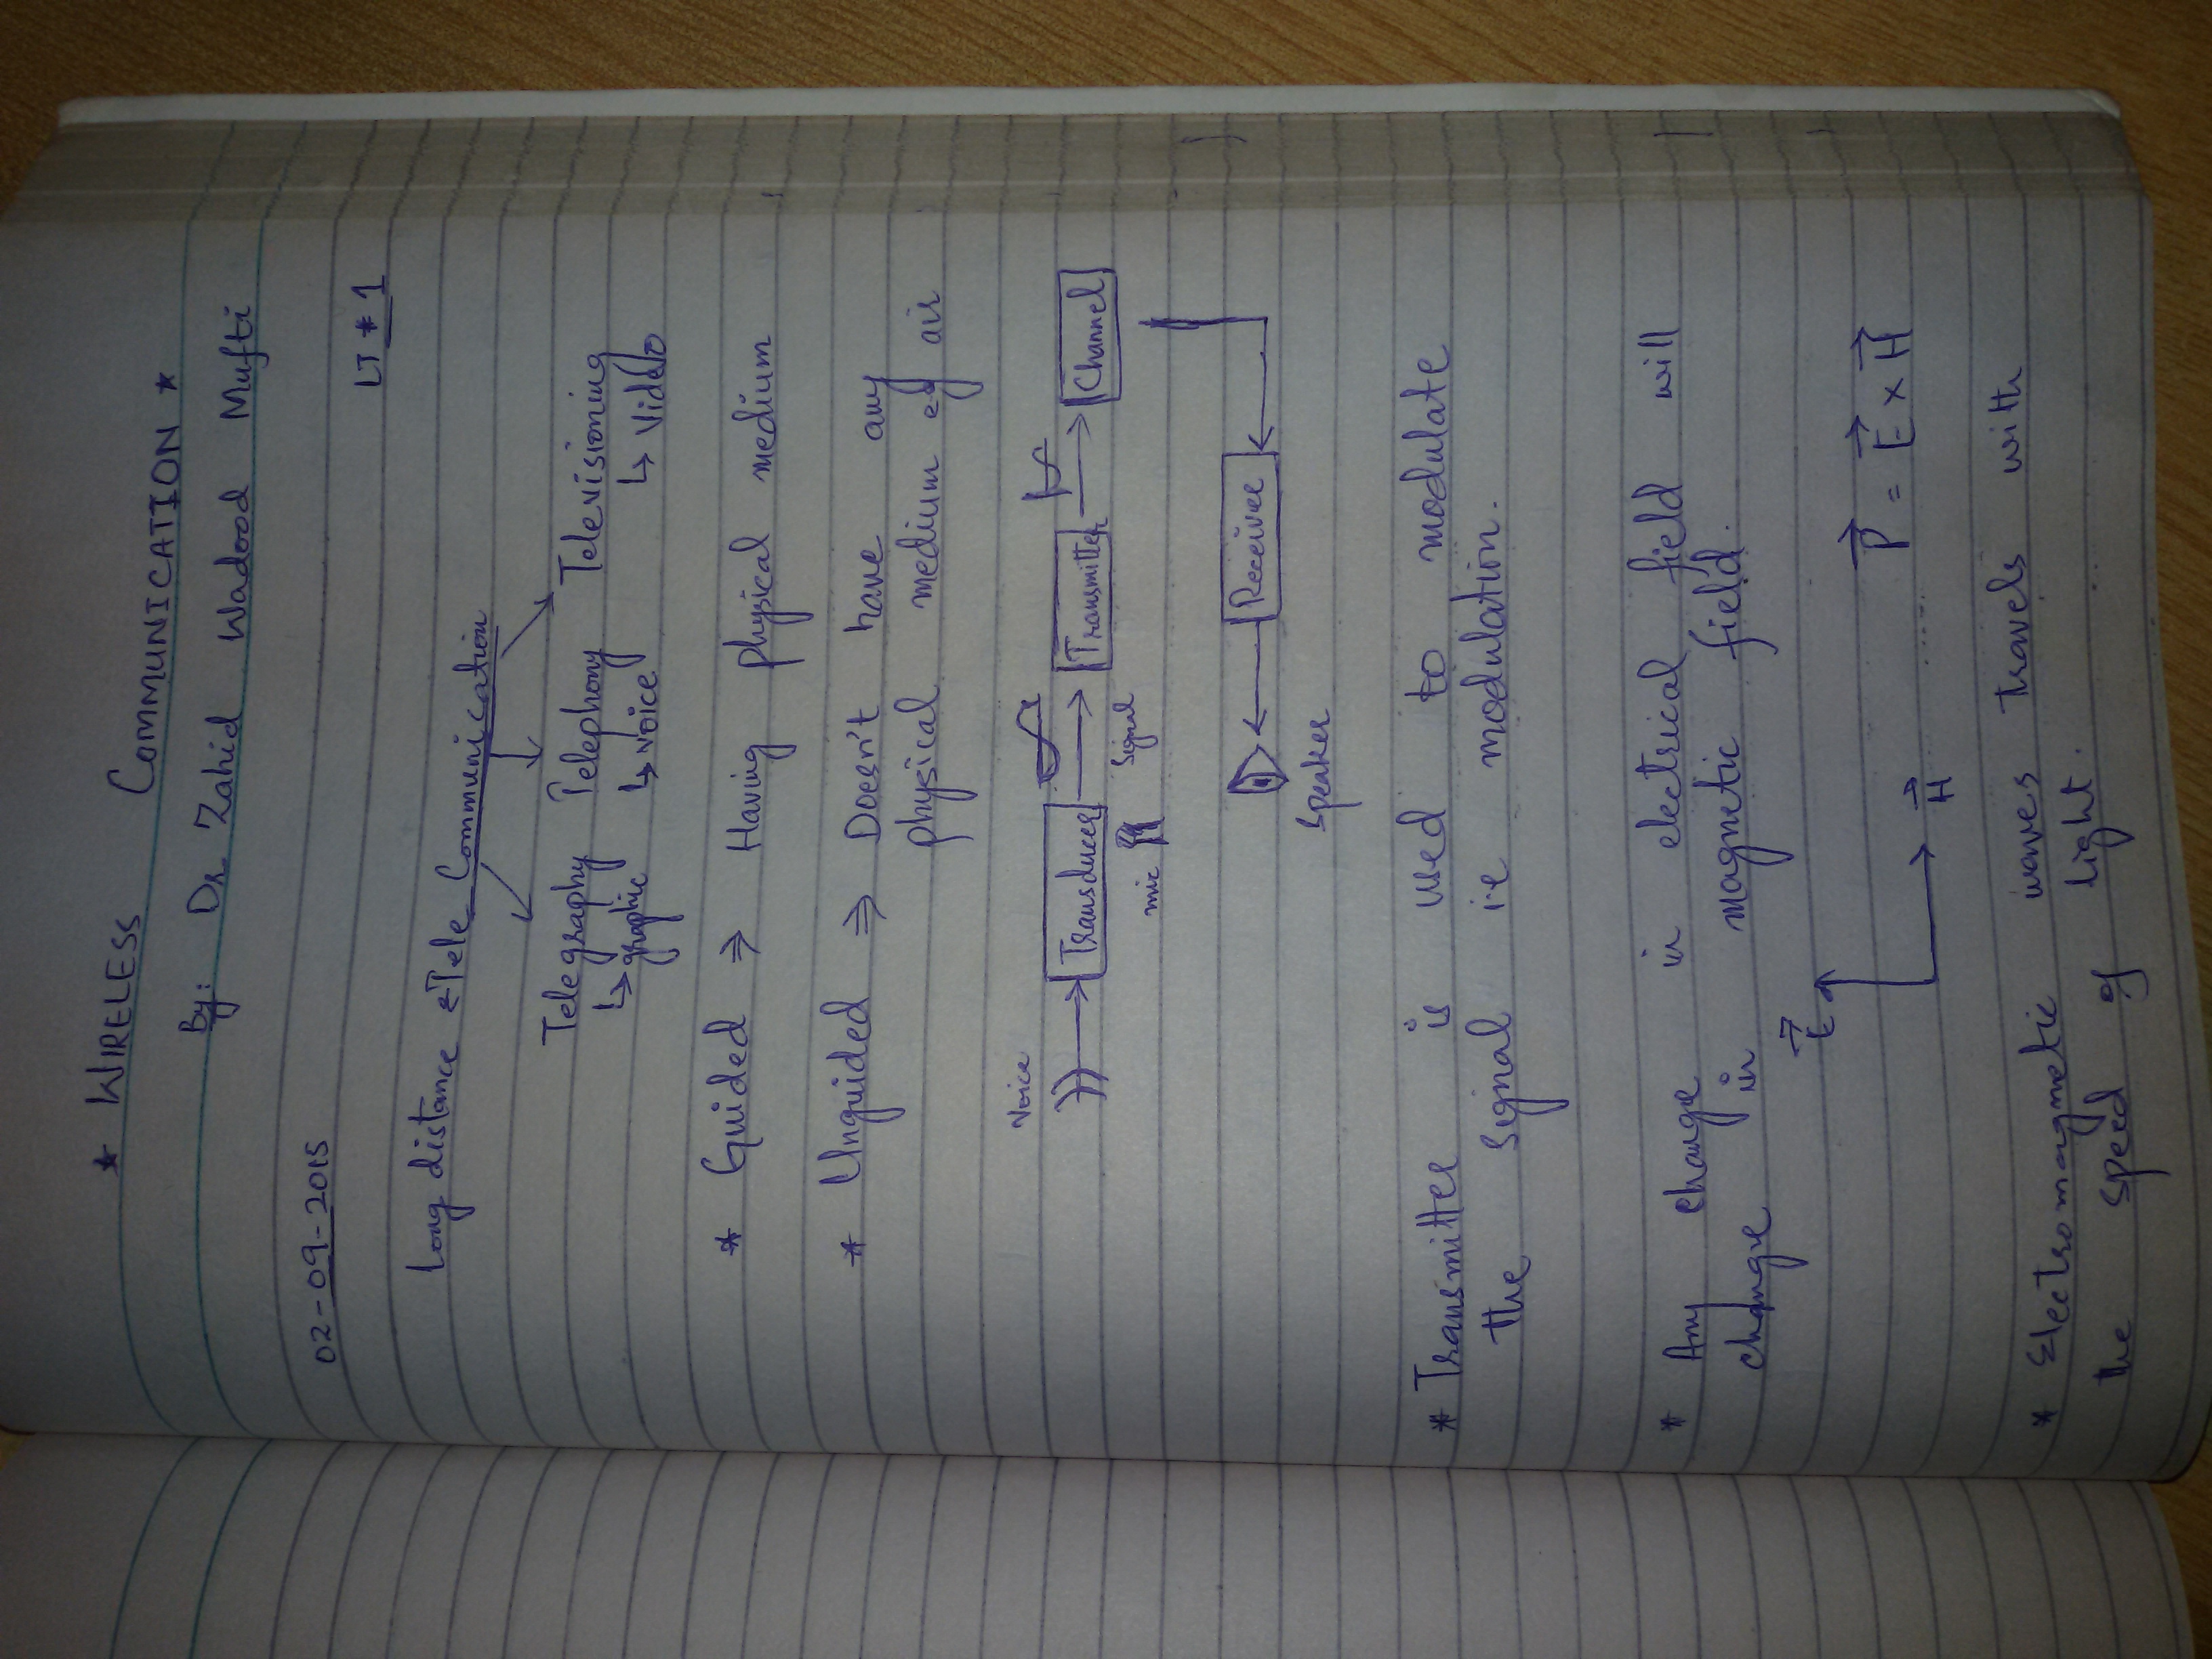 * WIRELESS COMMUNICATION *
By: Dr Zahid Wadood Mufti
02-09-2015
LT # 1
Long distance ⇐ Tele Communication
Telegraphy Telephony Televisioning
↳ graphic ↳ voice ↳ Video
* Guided ⇒ Having physical medium
* Unguided ⇒ Doesn't have any
physical medium eg air
Voice
Transducer → Transmitter → Channel
mic Signal
Receiver
Speaker
* Transmitter is used to modulate
the signal i.e modulation.
* Any change in electrical field will
change in magnetic field.
E⃗
P⃗ = E⃗ × H⃗
H⃗
* Electromagnetic waves travels with
the speed of light.